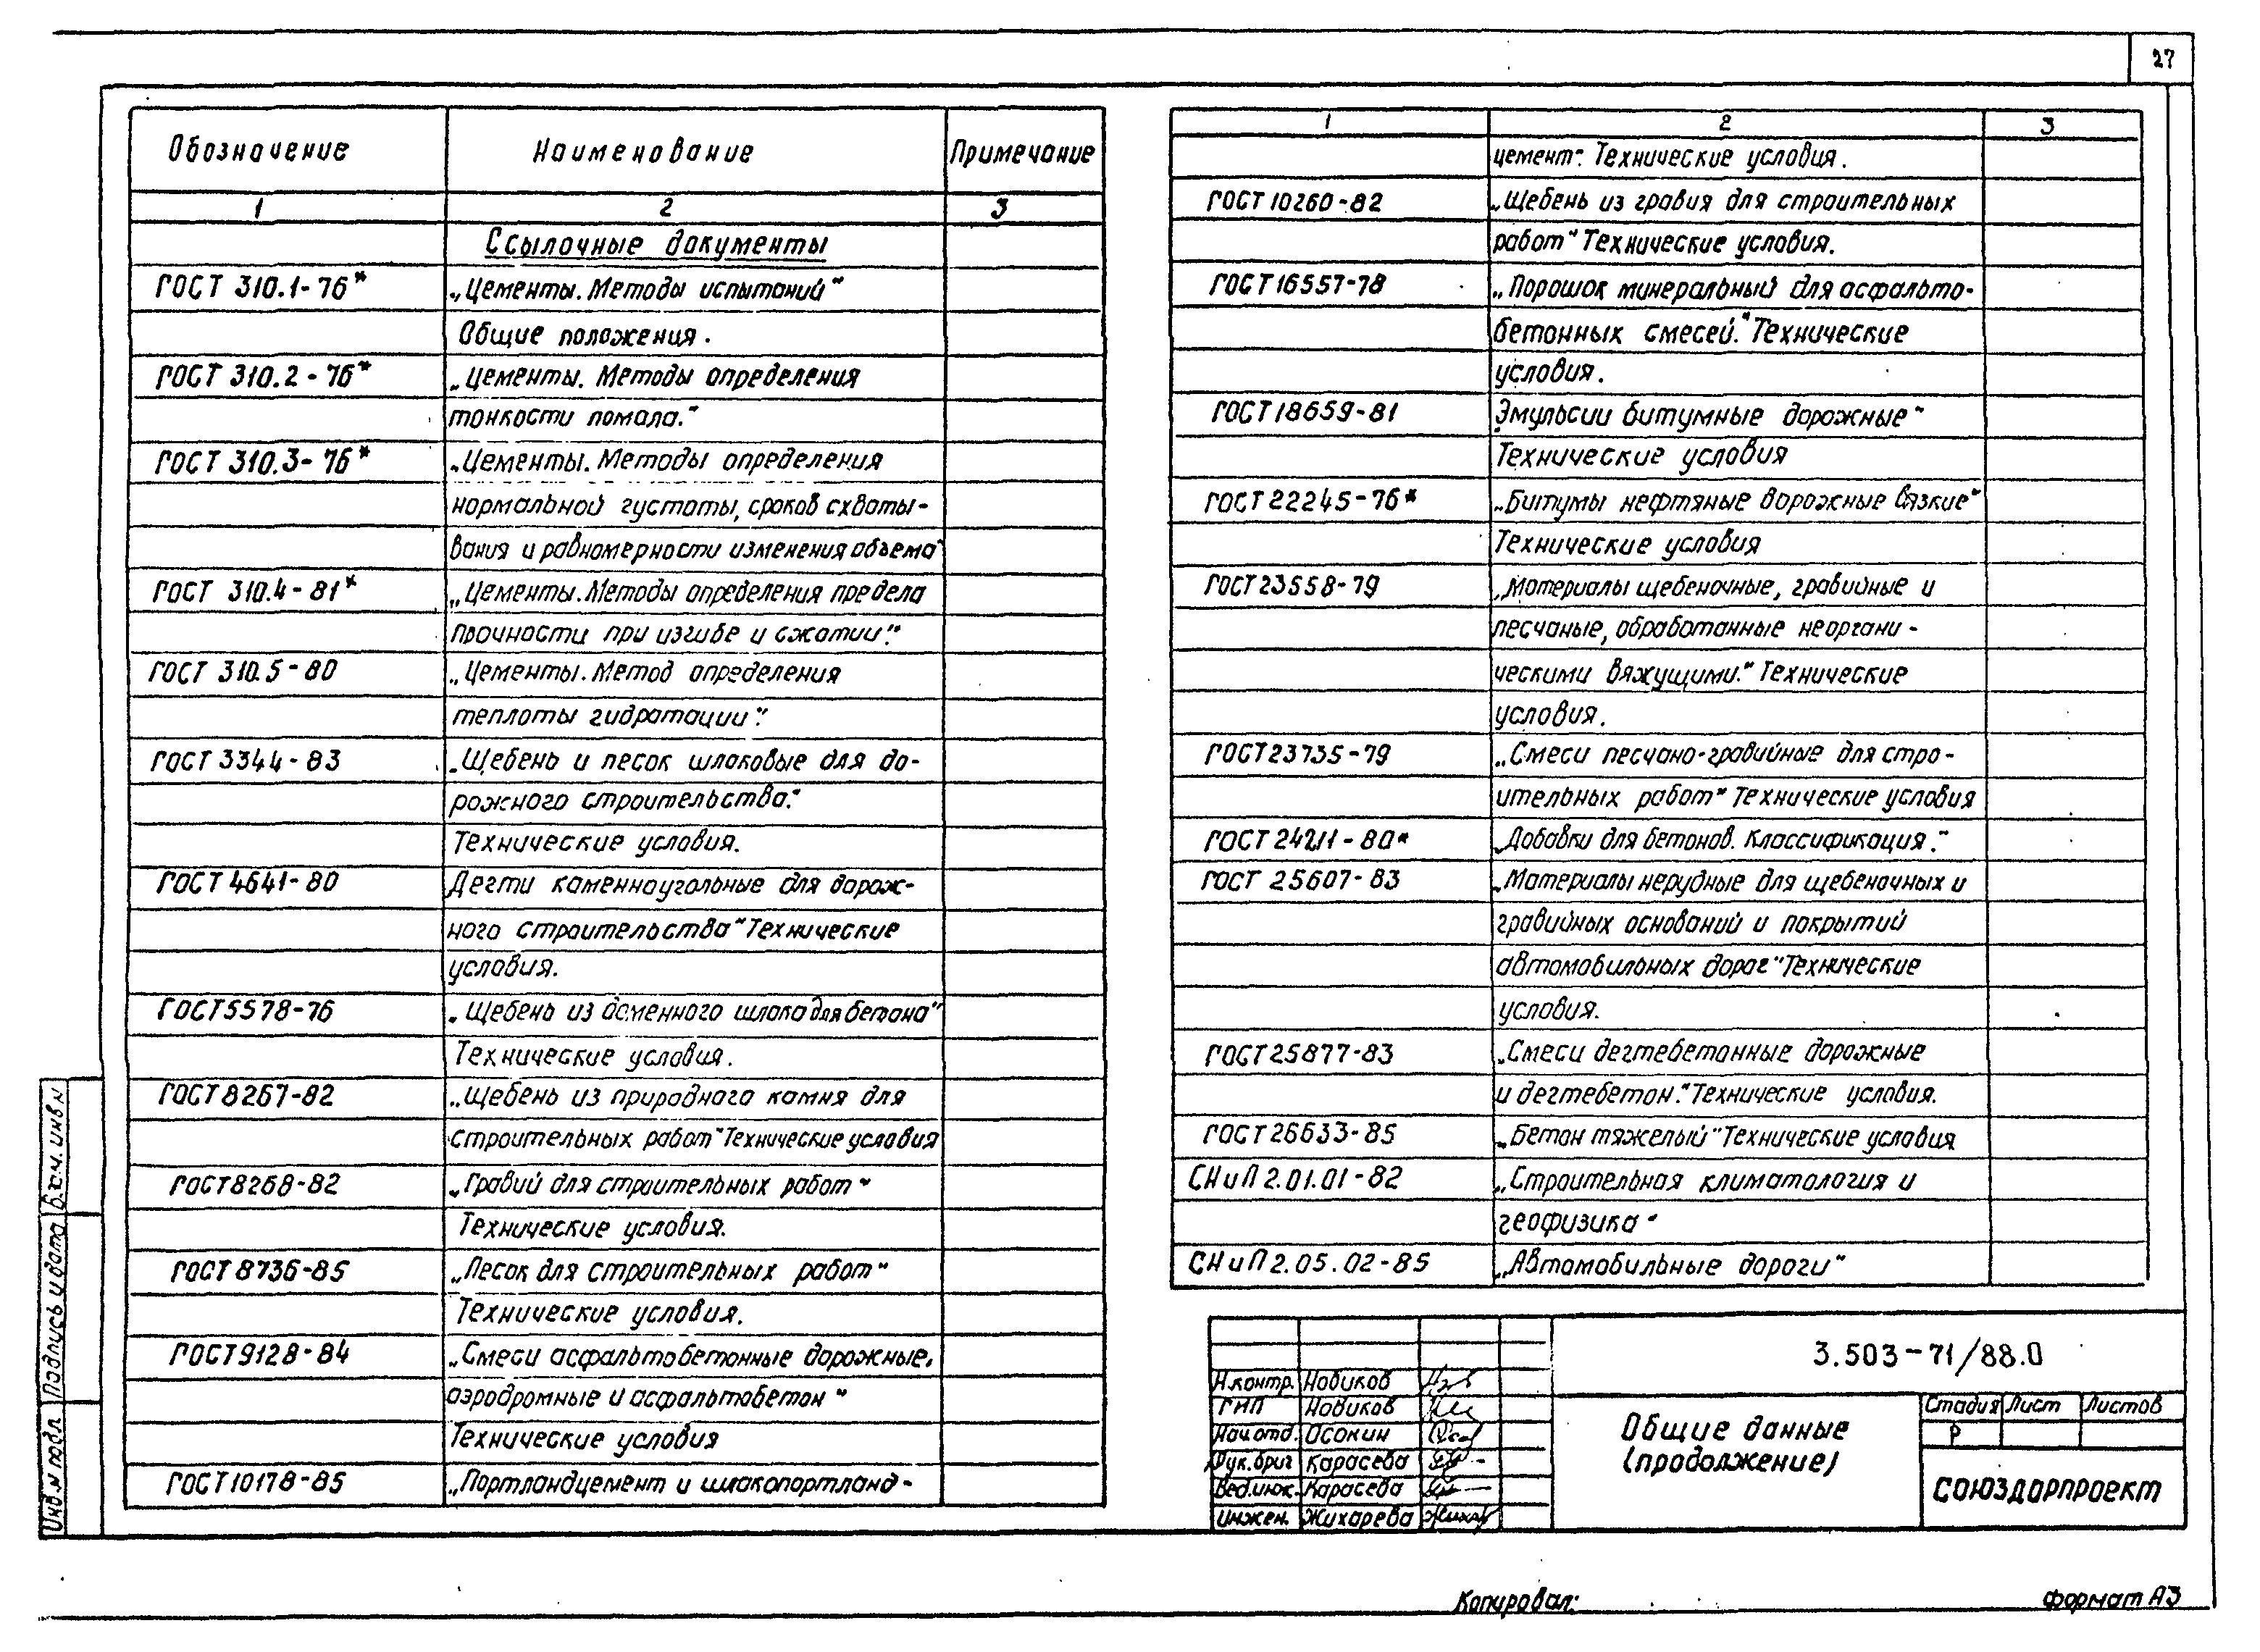 27
Обозначение Наименование Примечание
1 2 3
Ссылочные документы
ГОСТ 310.1-76* „Цементы. Методы испытаний“
Общие положения.
ГОСТ 310.2-76* „Цементы. Методы определения
тонкости помола.“
ГОСТ 310.3-76* „Цементы. Методы определения
нормальной густоты, сроков схваты-
вания и равномерности изменения объема“
ГОСТ 310.4-81* „Цементы. Методы определения предела
прочности при изгибе и сжатии“.
ГОСТ 310.5-80 „Цементы. Метод определения
теплоты гидратации“.
ГОСТ 3344-83 „Щебень и песок шлаковые для до-
рожного строительства.“
Технические условия.
ГОСТ 4641-80 Дегти каменноугольные для дорож-
ного строительства“ Технические
условия.
ГОСТ 5578-76 „Щебень из доменного шлака для бетона“
Технические условия.
ГОСТ 8267-82 „Щебень из природного камня для
строительных работ“ Технические условия
ГОСТ 8268-82 „Гравий для строительных работ“
Технические условия.
ГОСТ 8736-85 „Песок для строительных работ“
Технические условия.
ГОСТ 9128-84 „Смеси асфальтобетонные дорожные,
аэродромные и асфальтобетон“
Технические условия
ГОСТ 10178-85 „Портландцемент и шлакопортланд-
1 2 3
цемент“. Технические условия.
ГОСТ 10260-82 „Щебень из гравия для строительных
работ“ Технические условия.
ГОСТ 16557-78 „Порошок минеральный для асфальто-
бетонных смесей.“ Технические
условия.
ГОСТ 18659-81 Эмульсии битумные дорожные“
Технические условия
ГОСТ 22245-76* „Битумы нефтяные дорожные вязкие“
Технические условия
ГОСТ 23558-79 „Материалы щебеночные, гравийные и
песчаные, обработанные неоргани-
ческими вяжущими.“ Технические
условия.
ГОСТ 23735-79 „Смеси песчано-гравийные для стро-
ительных работ“ Технические условия
ГОСТ 24211-80* „Добавки для бетонов. Классификация“.
ГОСТ 25607-83 „Материалы нерудные для щебеночных и
гравийных оснований и покрытий
автомобильных дорог“ Технические
условия.
ГОСТ 25877-83 „Смеси дегтебетонные дорожные
и дегтебетон.“ Технические условия.
ГОСТ 26633-85 „Бетон тяжелый“ Технические условия
СНиП 2.01.01-82 „Строительная климатология и
геофизика“
СНиП 2.05.02-85 „Автомобильные дороги“
3.503-71/88.0
Н.контр. Новиков
ГИП Новиков
Нач.отд. Осокин
Рук.бриг Карасева
Вед.инж. Карасева
Инжен. Жихарева
Общие данные
(продолжение)
Стадия Лист Листов
Р
СОЮЗДОРПРОЕКТ
Инв.N подл. Подпись и дата Взам. инв N
Копировал: Формат А3